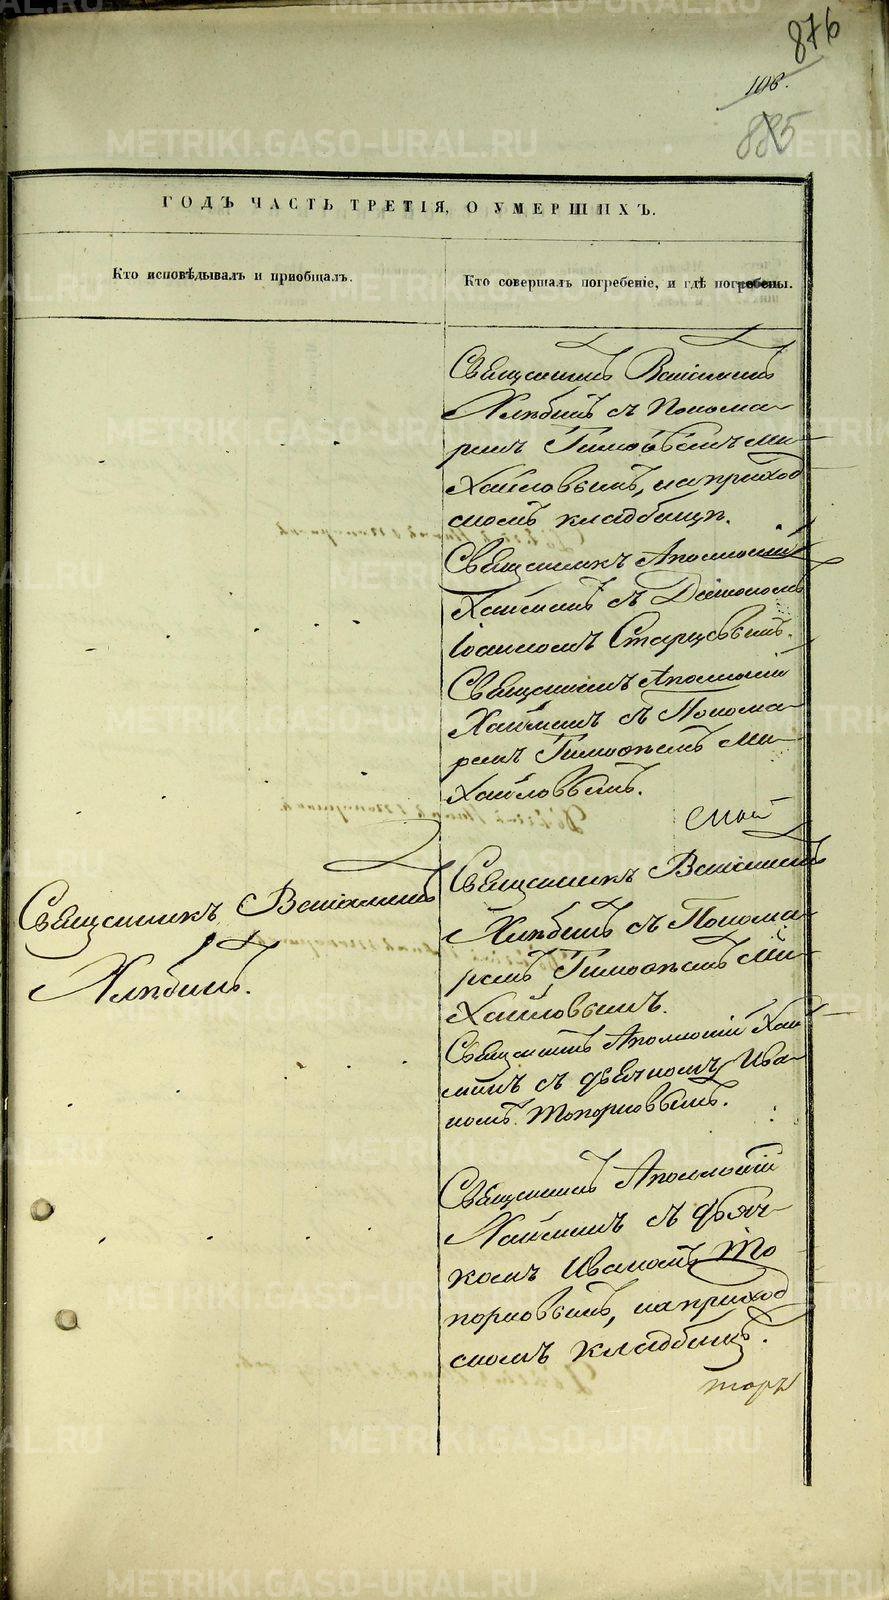 876
108.
885
ГОДЪ ЧАСТЬ ТРЕТІЯ, О УМЕРШИХЪ.
Кто исповѣдывалъ и пріобщалъ.
Кто совершалъ погребеніе, и гдѣ погребены.
Священникъ Веніаминъ
Хлѣбинъ съ Понома-
ремъ Тимоѳеемъ Ми-
хайловымъ, на приход
скомъ кладбищѣ.
Священникъ Аполлоній
съ Діакономъ
Іоанномъ Старцовымъ.
Священникъ Аполлоній
съ Понома-
ремъ Тимоѳеемъ Ми-
хайловымъ.
Священникъ Веніаминъ
Хлѣбинъ.
Священникъ Веніаминъ
Хлѣбинъ съ Понома-
ремъ Тимоѳеемъ Ми-
хайловымъ.
Священникъ Аполлоній
съ дьячкомъ Ива-
номъ Топорковымъ.
Священникъ Аполлоній
съ дьяч-
комъ Иваномъ То
порковымъ, на приход
скомъ кладбищѣ.
METRIKI.GASO-URAL.RU